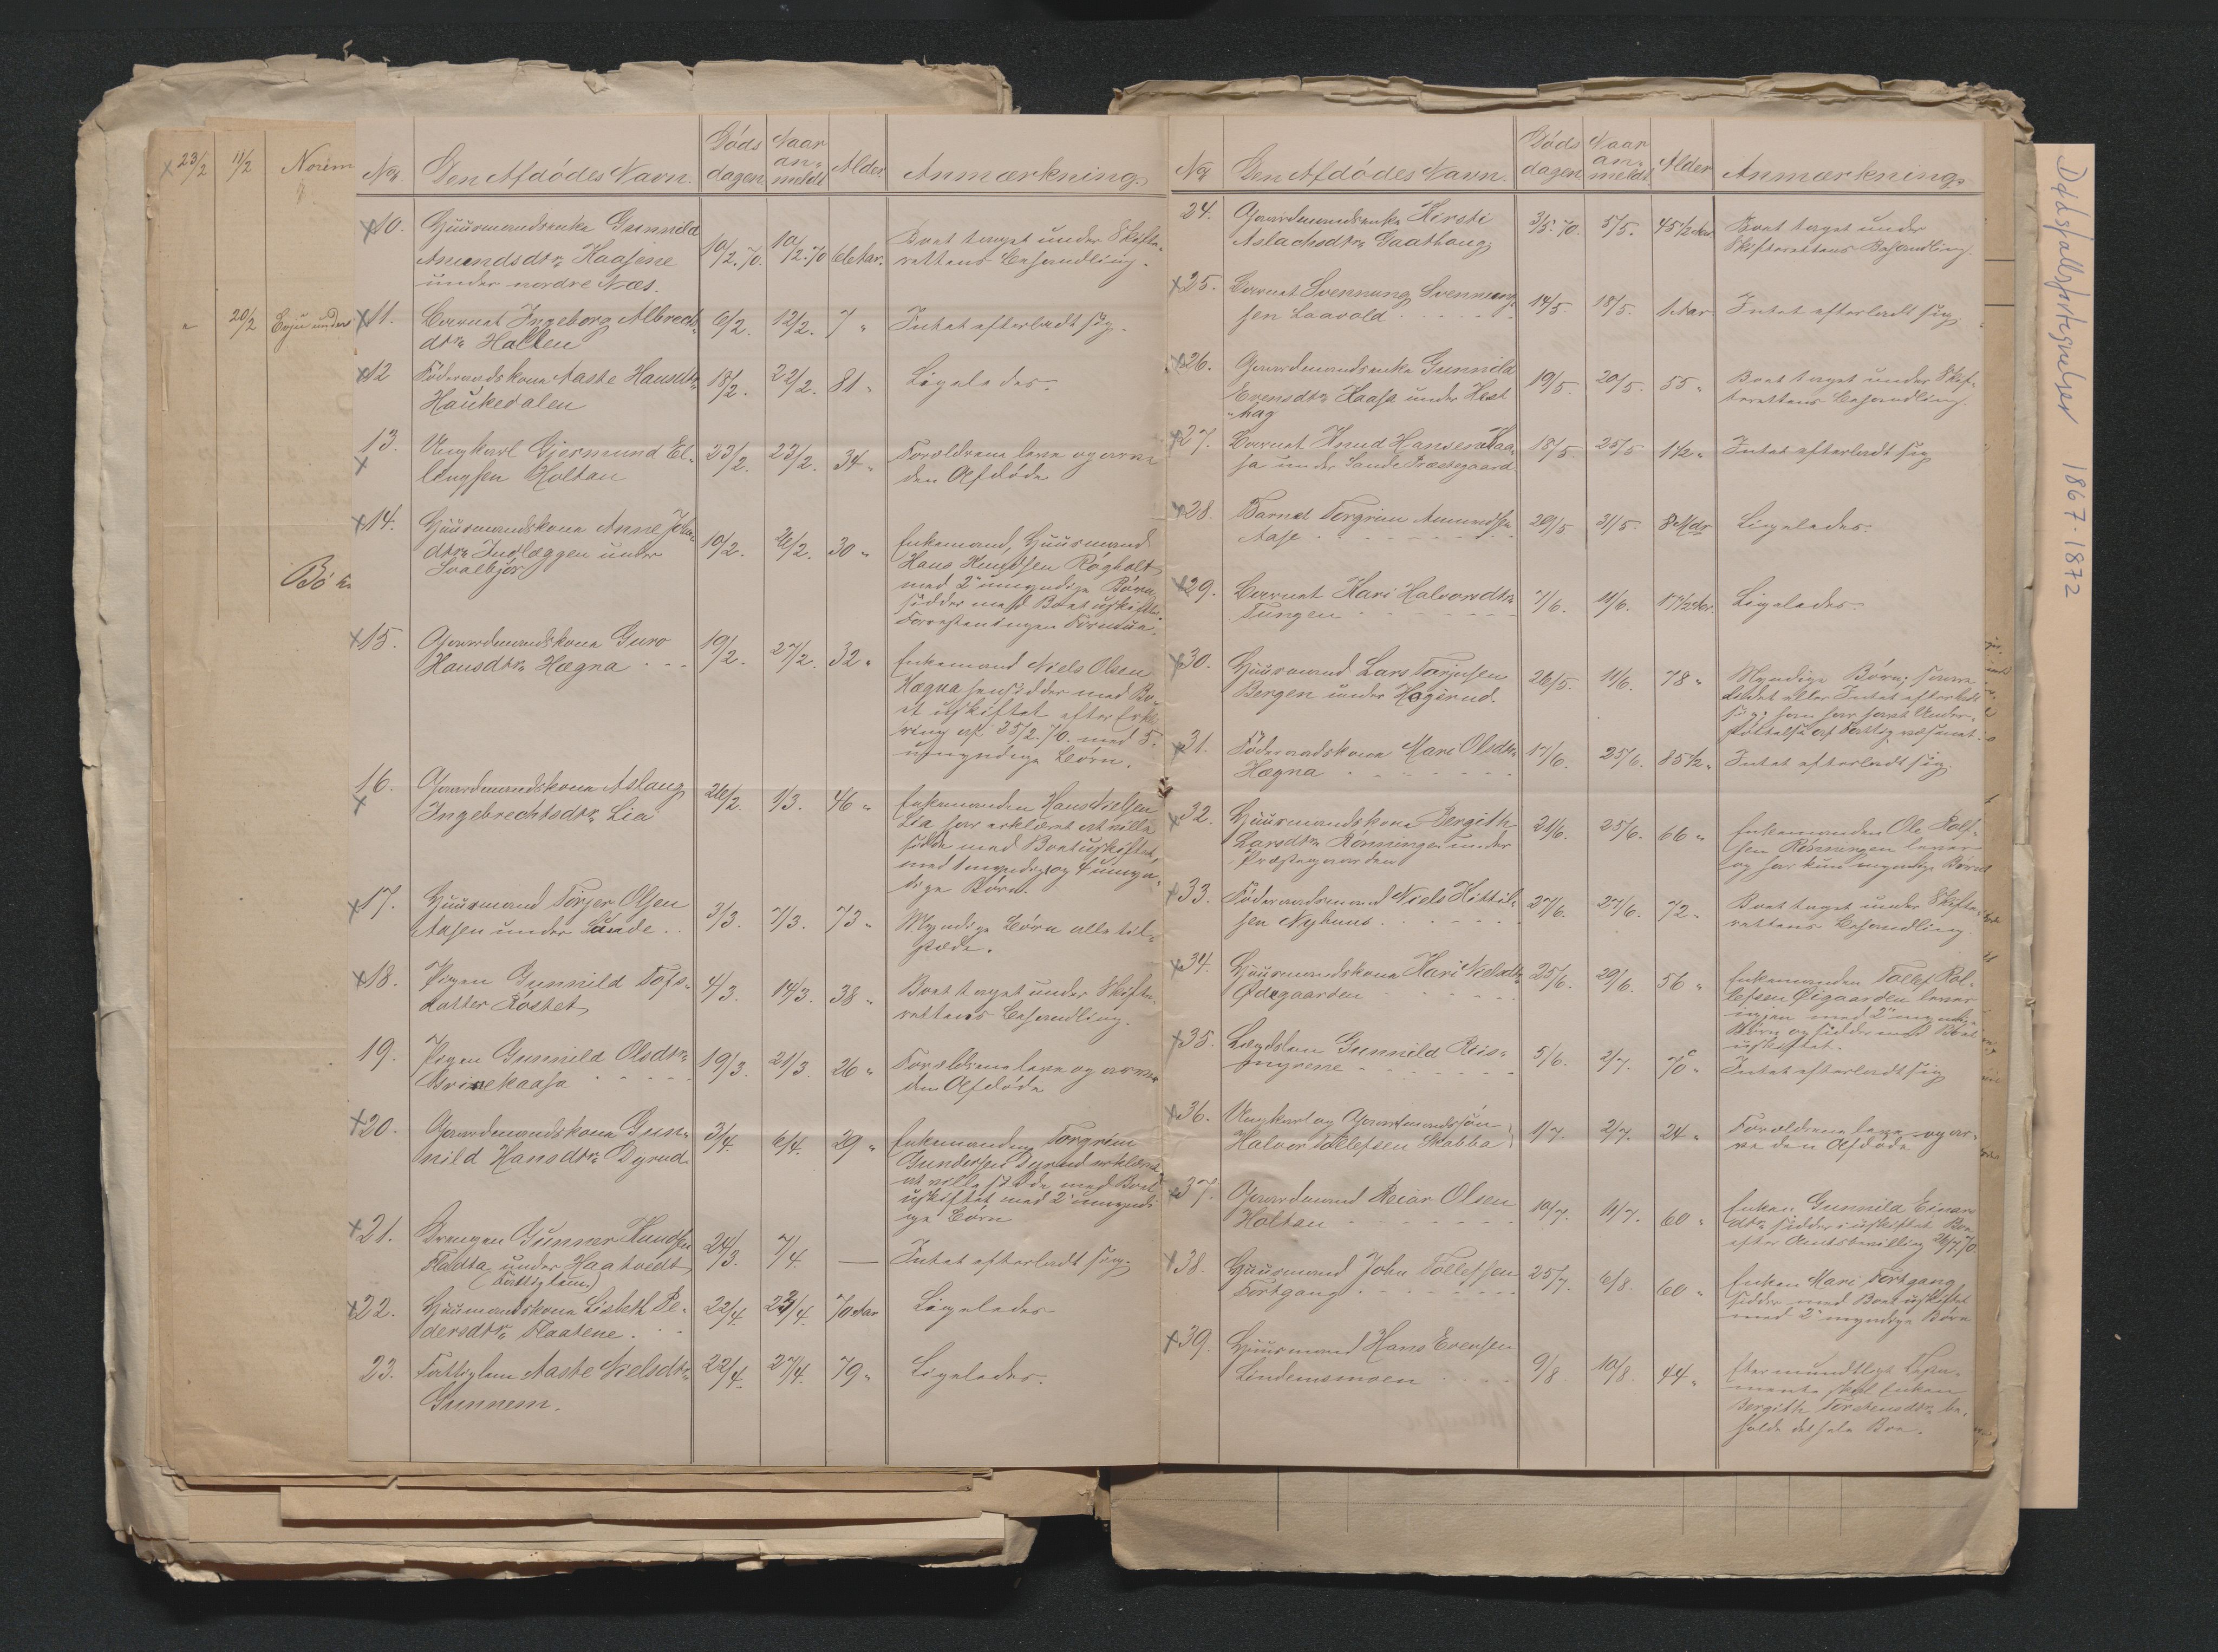 x 23/2 11/2 Norem
" 20/2 under
Bö
No. Den Afdödes Navn. Döds dagen Naar an- meldt Alder. Anmærkning.
x10. Huusmandsenke Gunnild
Amundsdtr. Haasene
under nordre Næs.
10/2.70. 10/2.70 66 Aar.
Boet taget under Skifte-
rettens Behandling.
x11. Barnet Ingeborg Albrechts-
dtr. Hallen
6/2. 12/2. 7 " Intet efterladt sig.
x12 Föderaadskone Aaste Hansdtr.
Haukedalen
18/2. 22/2. 81 " Ligeledes.
13. Ungkarl Gjermund El-
x lingsen Holtan
23/2. 23/2. 34 " Forældrene leve og arve
den Afdöde
x14. Huusmandskone Anne Johns-
dtr. Indlæggen under
Svalbjør
10/2. 30 " Enkemand, Huusmand
Hans Knudsen Rögholt
med 2 umyndige Börn
sidder med Boet uskiftet
x15. Gaardmandskone Guro
Hansdtr. Hægna
19/2. 27/2. 32 " Enkemand Niels Olsen
Hægna hensidder med Bo-
et uskiftet efter Erklæ-
ring af 25/2.70. med 5
umyndige Börn.
16. Gaardmandskone Aslaug
x Ingebrechtsdtr. Lia
26/2. 1/3. 46 " Enkemanden Hans Nielsen
Lia har erklæret at ville
sidde med Boet uskiftet,
med 1 myndig og 4 umyn-
dige Börn.
x17. Huusmand Torjer Olsen
Aasen under Sande
3/3. 7/3. 73 " Myndige Börn alle til-
stede.
x18. Pigen Gunnild Tofs-
datter Rostet
4/3. 14/3. 38 " Boet taget under Skifte-
rettens Behandling.
19. Pigen Gunnild Olsdtr.
Brinekaasa
19/3. 21/3. 26 " Forældrene leve og arve
den Afdöde
x20. Gaardmandskone Gun-
nild Hansdtr. Dyrud
3/4. 6/4. 29 " Enkemanden Torgrim
Gundersen Dyrud erklæret
at ville sidde med Boet
uskiftet med 2 umyndi
ge Börn
x21. Drengen Gunnar Knudsen
Fladta under Haatvedt
(Fattiglem)
24/3. 7/4 — Intet efterladt sig.
x22. Huusmandskone Lisbeth Pe-
dersdtr. Flaatene.
22/4. 23/4. 70 Aar Ligeledes
23. Fattiglem Aaste Nielsdtr.
Gunnem.
22/4. 27/4. 79 " Ligeledes.
No. Den Afdödes Navn. Döds dagen Naar an- meldt. Alder Anmærkning.
24. Gaardmandsenke Kirsti
Aslachsdtr. Gaathaug
3/5.70. 5/5. 45 1/2 Aar Boet taget under
Skifterettens Behandling.
x25. Barnet Svennung Svennung-
sen Laavold
14/5 18/5. 1 Aar. Intet efterladt sig.
x26. Gaardmandsenke Gunnild
Evensdtr. Kaasa under Hest
hag
19/5. 20/5. 55 " Boet taget under Skif-
terettens Behandling.
x27. Barnet Knud Hansen Kaa-
sa under Sande Præstegaard
18/5. 25/5 1 1/2 " Intet efterladt sig
x28. Barnet Torgrim Amundsen
Aase
20/5 31/5 8 Mdr Ligeledes.
x29. Barnet Kari Halvorsdtr.
Tungen
7/6. 11/6. Ligeledes
x30. Huusmand Lars Torjusen
Bergen under Hegerud.
26/5. 11/6. 78 " Myndige Börn;
Intet efterladt
sig; han har havt Under-
stöttelse af Fattigvæsenet.
x31. Föderaadskone Mari Olsdtr.
Hægna
17/6. 25/6. 85 1/2 " Intet efterladt sig.
x32. Huusmandskone Bergith
Larsdtr. Rönningen under
Præstegaarden
21/6. 25/6. 66 " Enkemanden Ole Rolf-
sen Rönningen lever
og har kun myndige Börn
x33. Föderaadsmand Niels Kittil-
sen Nyhuus.
27/6. 27/6. 72 " Boet taget under Skifte-
rettens Behandling.
x34. Huusmandskone Kari Nielsdtr.
Ödegaarden
25/6. 29/6. 56 " Enkemanden Tollef Rol-
lefsen Öigaarden lever
igjen med 2 myndige
Börn og sidder med Boet
uskiftet.
x35. Lægdslem Gunnild Reis-
myrene
5/6. 2/7. 70 " Intet efterladt sig
x36. Ungkarl og Gaardmandssön
Halvor Tollefsen Stabba
1/7. 2/7. 24 " Forældrene leve og ar-
ve den Afdöde
x37. Gaardmand Reiar Olsen
Holtan
10/7. 11/7. 60 " Enken Gunnild Einar
dtr. sidder i uskiftet Bo
efter Amtsbevilling 26/7.70
x38. Huusmand John Tollefsen
Tortgang
25/7. 6/8. 60 " Enken Mari Tortgang
sidder med Boet uskiftet
med 2 myndige Börn
x39. Huusmand Hans Evensen
Lindemsmoen
9/8 10/8. 44 " Efter mundtligt Testa-
mente skal Enken
Bergith Torstensdtr. be-
holde det hele Boe.
Dödsfallsfortegnelser 1867-1872